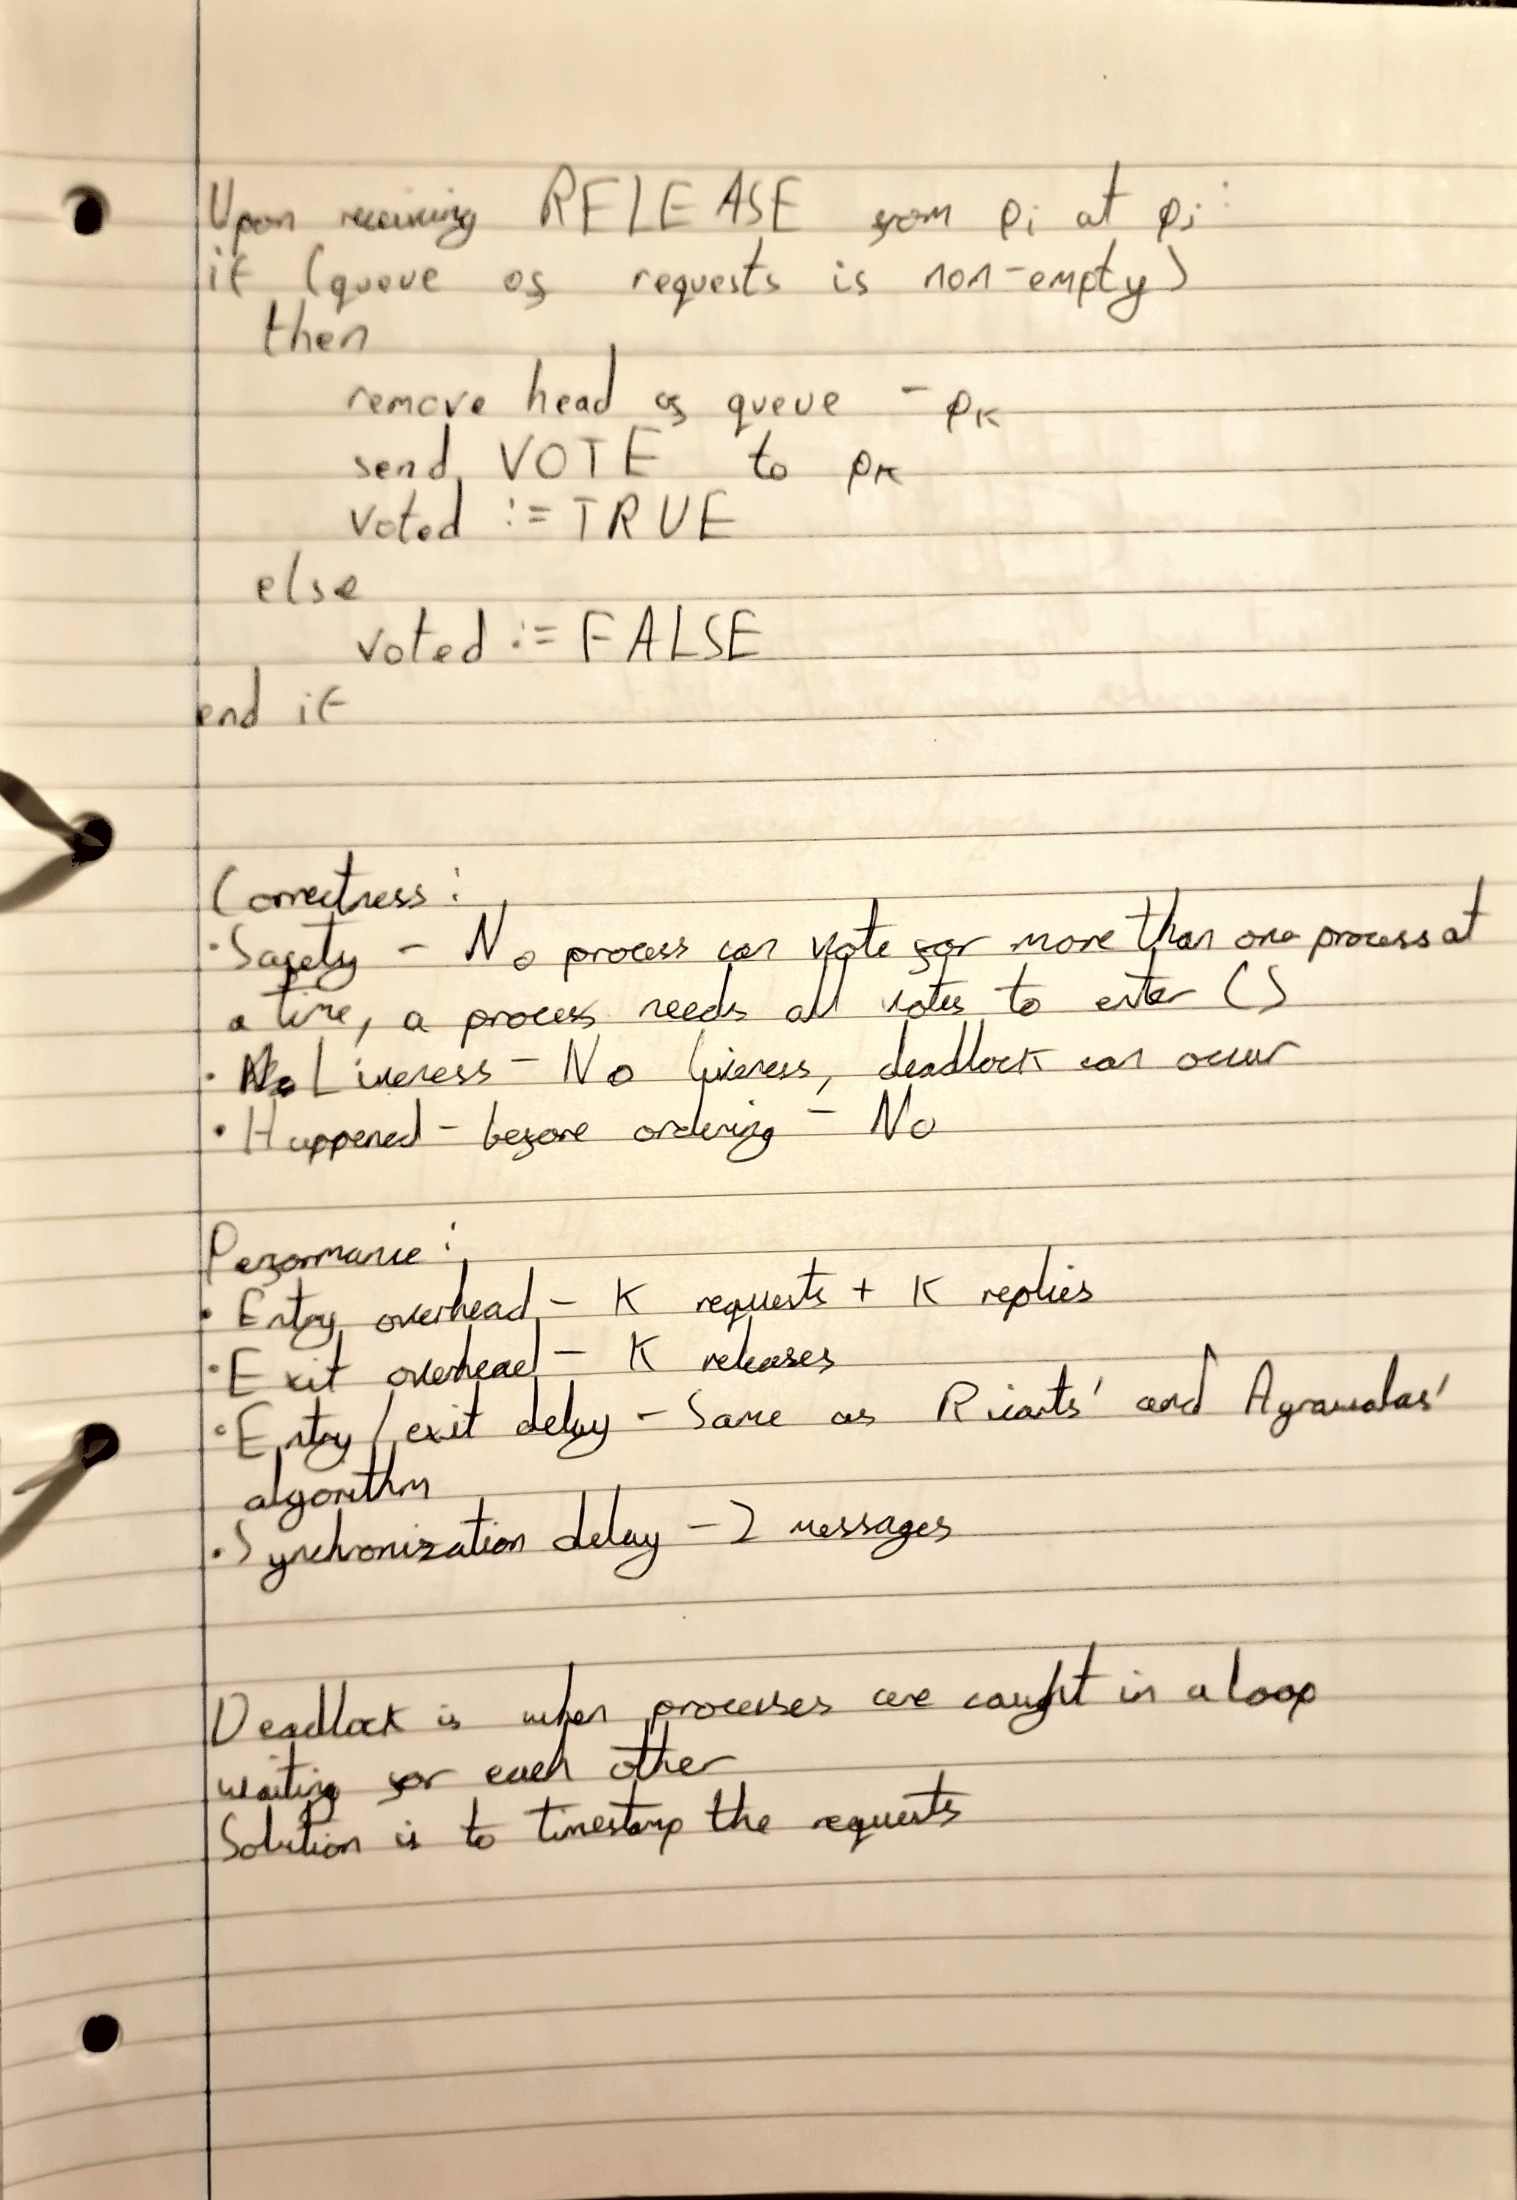 Upon receiving RELEASE from pi at pj:
if (queue of requests is non-empty)
then
remove head of queue - pk
send VOTE to pk
voted := TRUE
else
voted := FALSE
end if
Correctness:
· Safety - No process can vote for more than one process at
a time, a process needs all votes to enter CS
· Liveness - No liveness, deadlock can occur
· Happened-before ordering - No
Performance:
· Entry overhead - K requests + K replies
· Exit overhead - K releases
· Entry/exit delay - Same as Ricarts' and Agrawalas'
algorithm
· Synchronization delay - 2 messages
Deadlock is when processes are caught in a loop
waiting for each other
Solution is to timestamp the requests